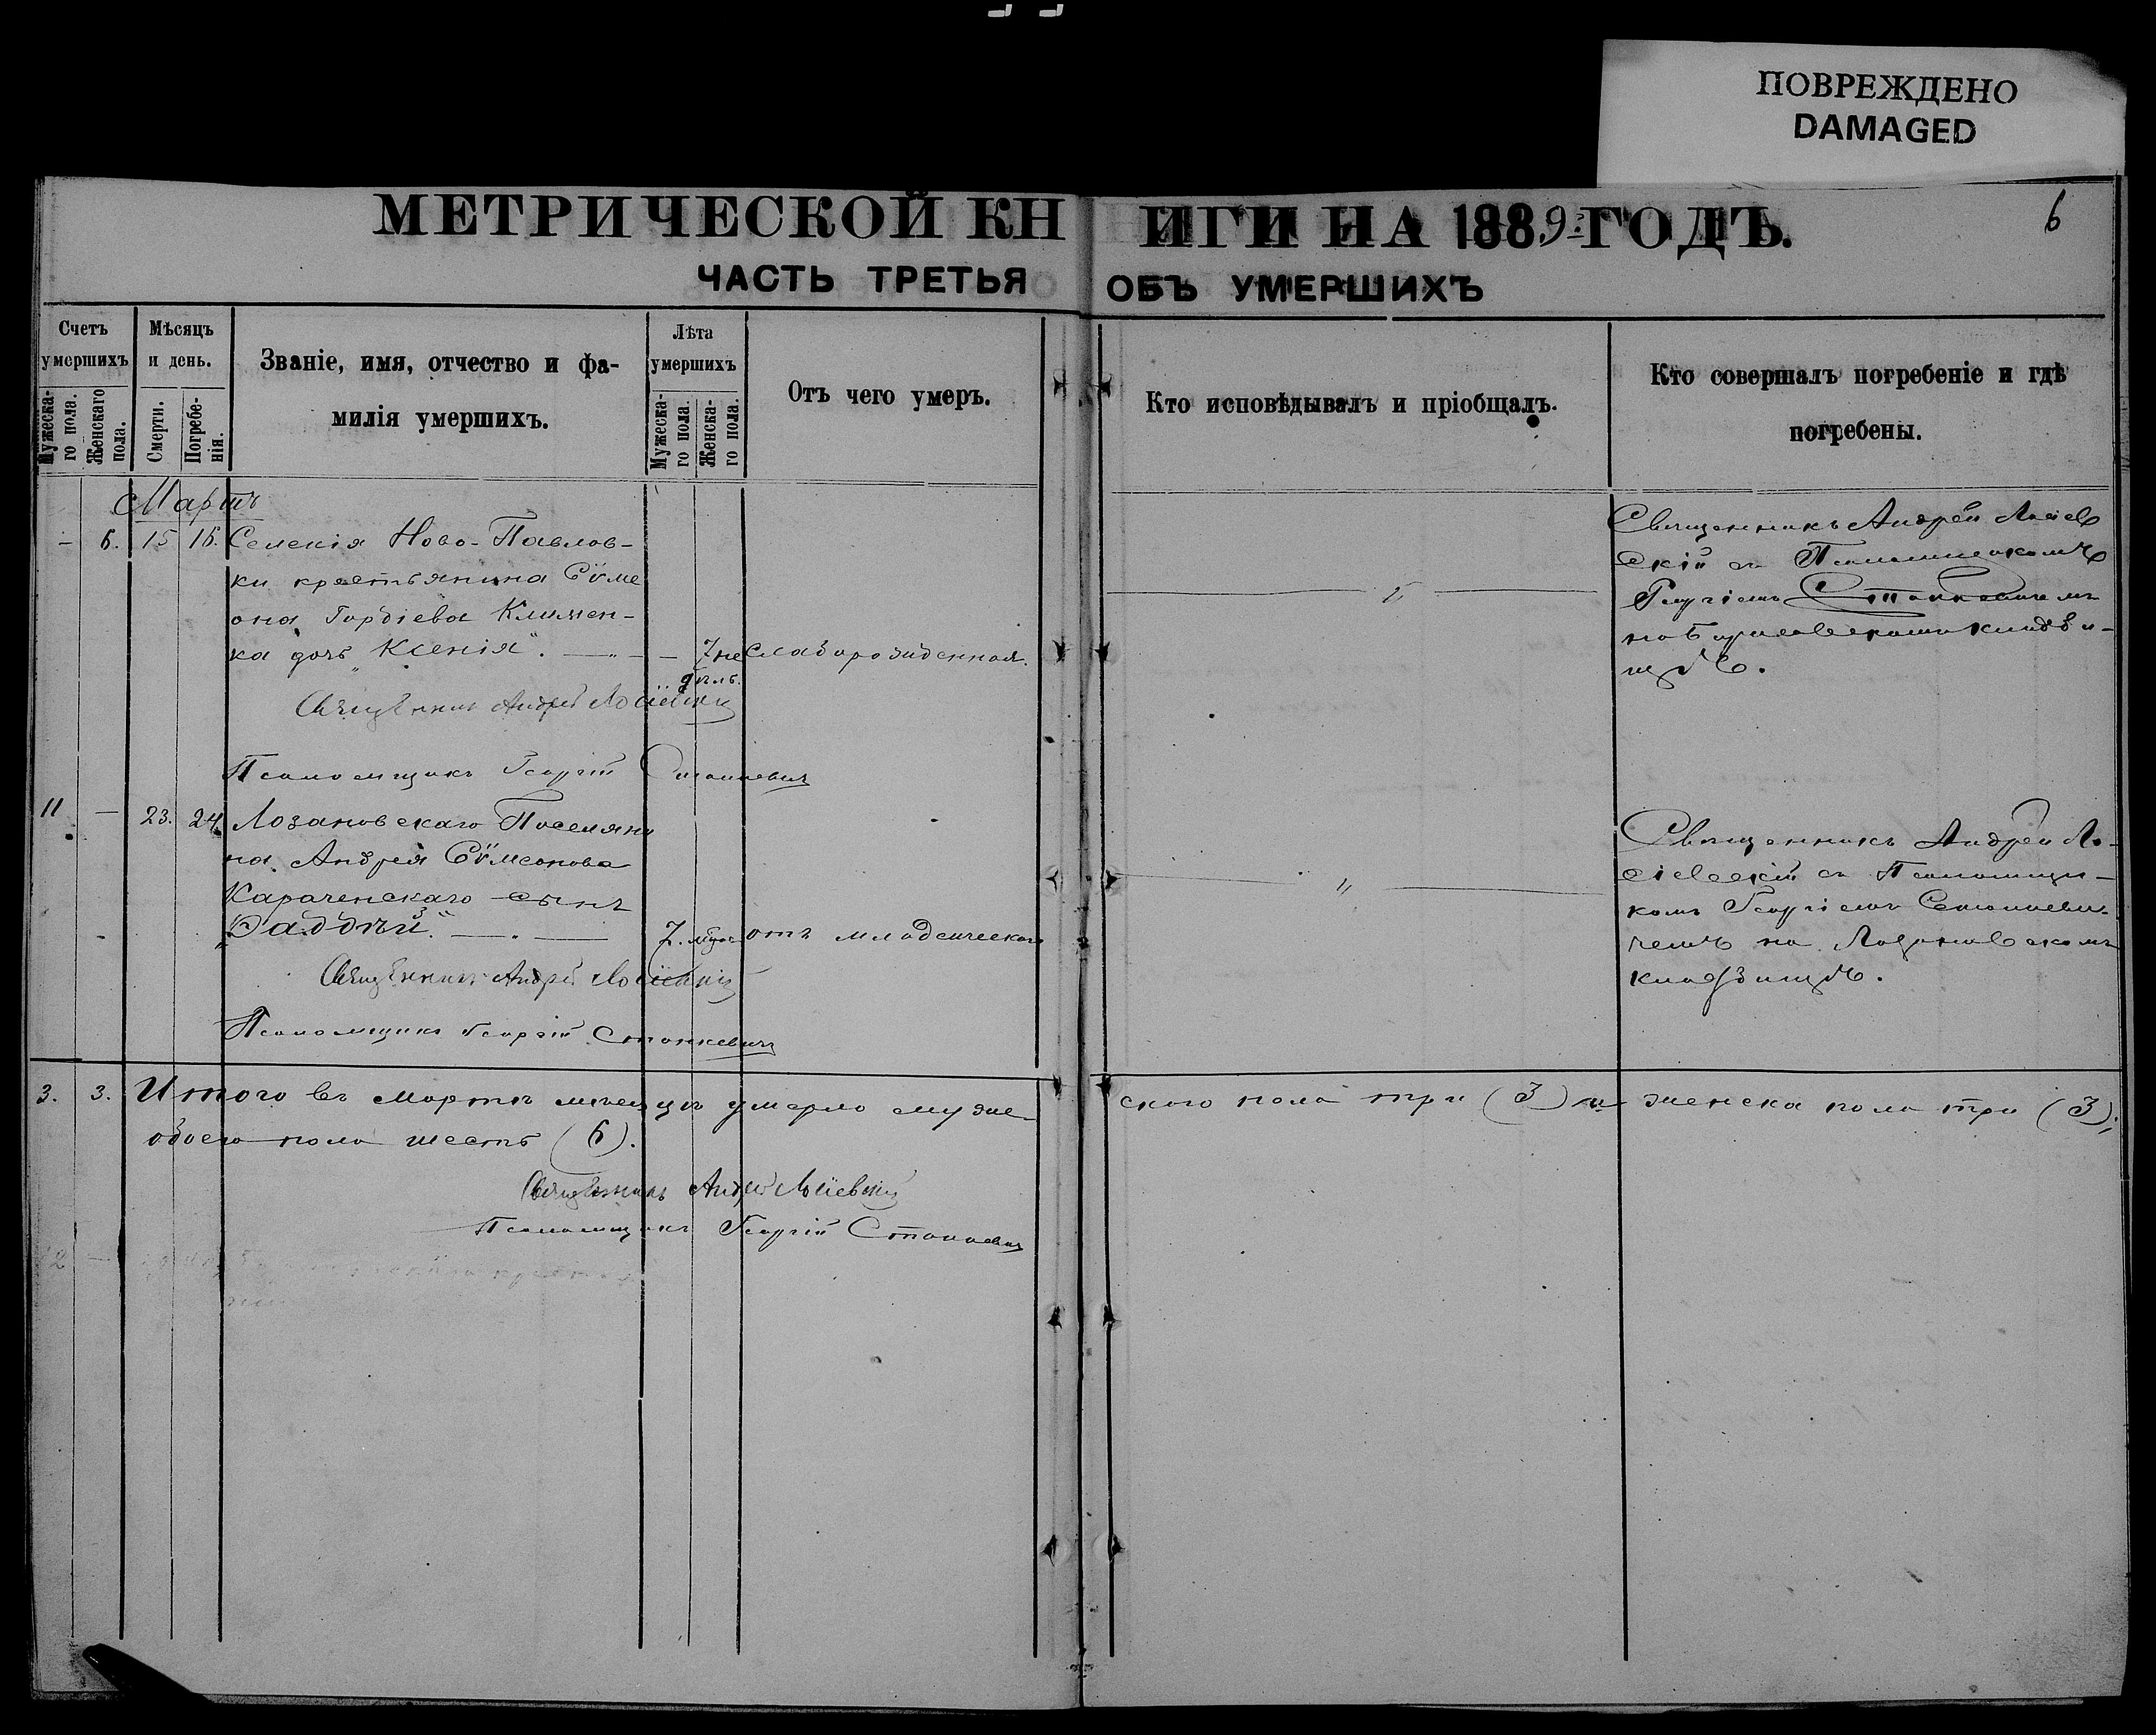 ПОВРЕЖДЕНО
DAMAGED
6
МЕТРИЧЕСКОЙ КНИГИ НА 1889 ГОДЪ.
ЧАСТЬ ТРЕТЬЯ ОБЪ УМЕРШИХЪ
Счетъ умершихъ
Мужеска-го пола.
Женскаго пола.
Мѣсяцъ и день.
Смерти.
Погребе-нія.
Званіе, имя, отчество и фа-
милія умершихъ.
Лѣта умершихъ
Мужеска-го пола.
Женска-го пола.
Отъ чего умеръ.
Кто исповѣдывалъ и пріобщалъ.
Кто совершалъ погребеніе и гдѣ
погребены.
Мартъ
- 6. 15 16. Селенія Ново-Павлов-
ки крестьянина Сѵме
она Гордіева Климен-
ка дочь „Ксенія“. — „ — 7 не Слаборожденная.
дѣль.
Священникъ Андрей Лосіевскій
Псаломщикъ Георгій Станкевичъ
Священникъ Андрей Лосіев
скій съ Псаломщикомъ
Георгіемъ Станкевичемъ
кладби-
щѣ.
11 — 23. 24. Лозановскаго Поселяни
на Андрея Сѵмеонова
Караченскаго сынъ
„Фаддѣй“. — „ — 7. мѣс отъ младенческаго
Священникъ Андрей Лосіевскій
Псаломщикъ Георгій Станкевичъ
Священникъ Андрей Ло-
сіевскій съ Псаломщи-
комъ Георгіемъ Станкеви-
чемъ на Лозановскомъ
кладбищѣ.
3. 3. Итого въ мартѣ мѣсяцѣ умерло мужескаго пола три (3) и женска пола три (3);
обоего пола шесть (6).
Священникъ Андрей Лосіевскій
Псаломщикъ Георгій Станкевичъ
12 —